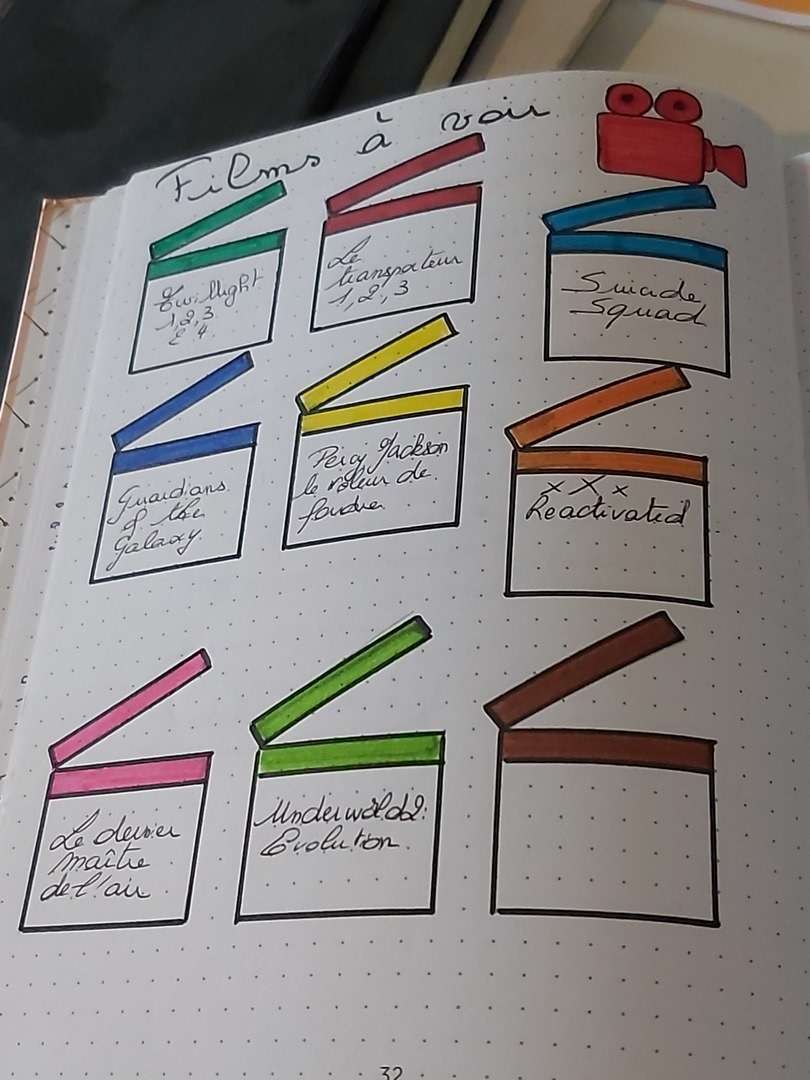 Films à voir
Twillight
1, 2, 3
E 4.
Le
transporteur
1, 2, 3
Suicide
Squad
Guardians
of the
Galaxy
Percy Jackson
le voleur de
foudre
x X x
Reactivated
Le dernier
maître
de l'air
Underworld 2:
Evolution
32